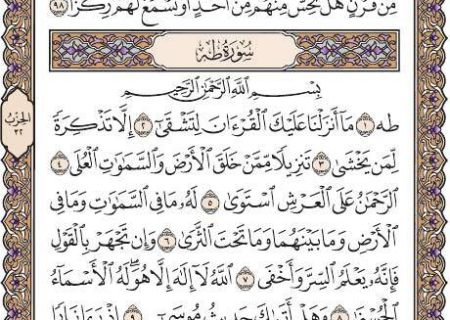 مِّن قَرْنٍ هَلْ تُحِسُّ مِنْهُم مِّنْ أَحَدٍ أَوْ تَسْمَعُ لَهُمْ رِكْزًا ٩٨
سُورَةُ طه
بِسْمِ ٱللَّهِ ٱلرَّحْمَٰنِ ٱلرَّحِيمِ
طه ١ مَآ أَنزَلْنَا عَلَيْكَ ٱلْقُرْءَانَ لِتَشْقَىٰٓ ٢ إِلَّا تَذْكِرَةً
لِّمَن يَخْشَىٰ ٣ تَنزِيلًا مِّمَّنْ خَلَقَ ٱلْأَرْضَ وَٱلسَّمَٰوَٰتِ ٱلْعُلَى ٤
ٱلرَّحْمَٰنُ عَلَى ٱلْعَرْشِ ٱسْتَوَىٰ ٥ لَهُۥ مَا فِي ٱلسَّمَٰوَٰتِ وَمَا فِي
ٱلْأَرْضِ وَمَا بَيْنَهُمَا وَمَا تَحْتَ ٱلثَّرَىٰ ٦ وَإِن تَجْهَرْ بِٱلْقَوْلِ
فَإِنَّهُۥ يَعْلَمُ ٱلسِّرَّ وَأَخْفَى ٧ ٱللَّهُ لَآ إِلَٰهَ إِلَّا هُوَ لَهُ ٱلْأَسْمَآءُ
ٱلْحُسْنَىٰ ٨ وَهَلْ أَتَىٰكَ حَدِيثُ مُوسَىٰٓ ٩ إِذْ رَءَا نَارًا
الحِزْبُ
٣٢